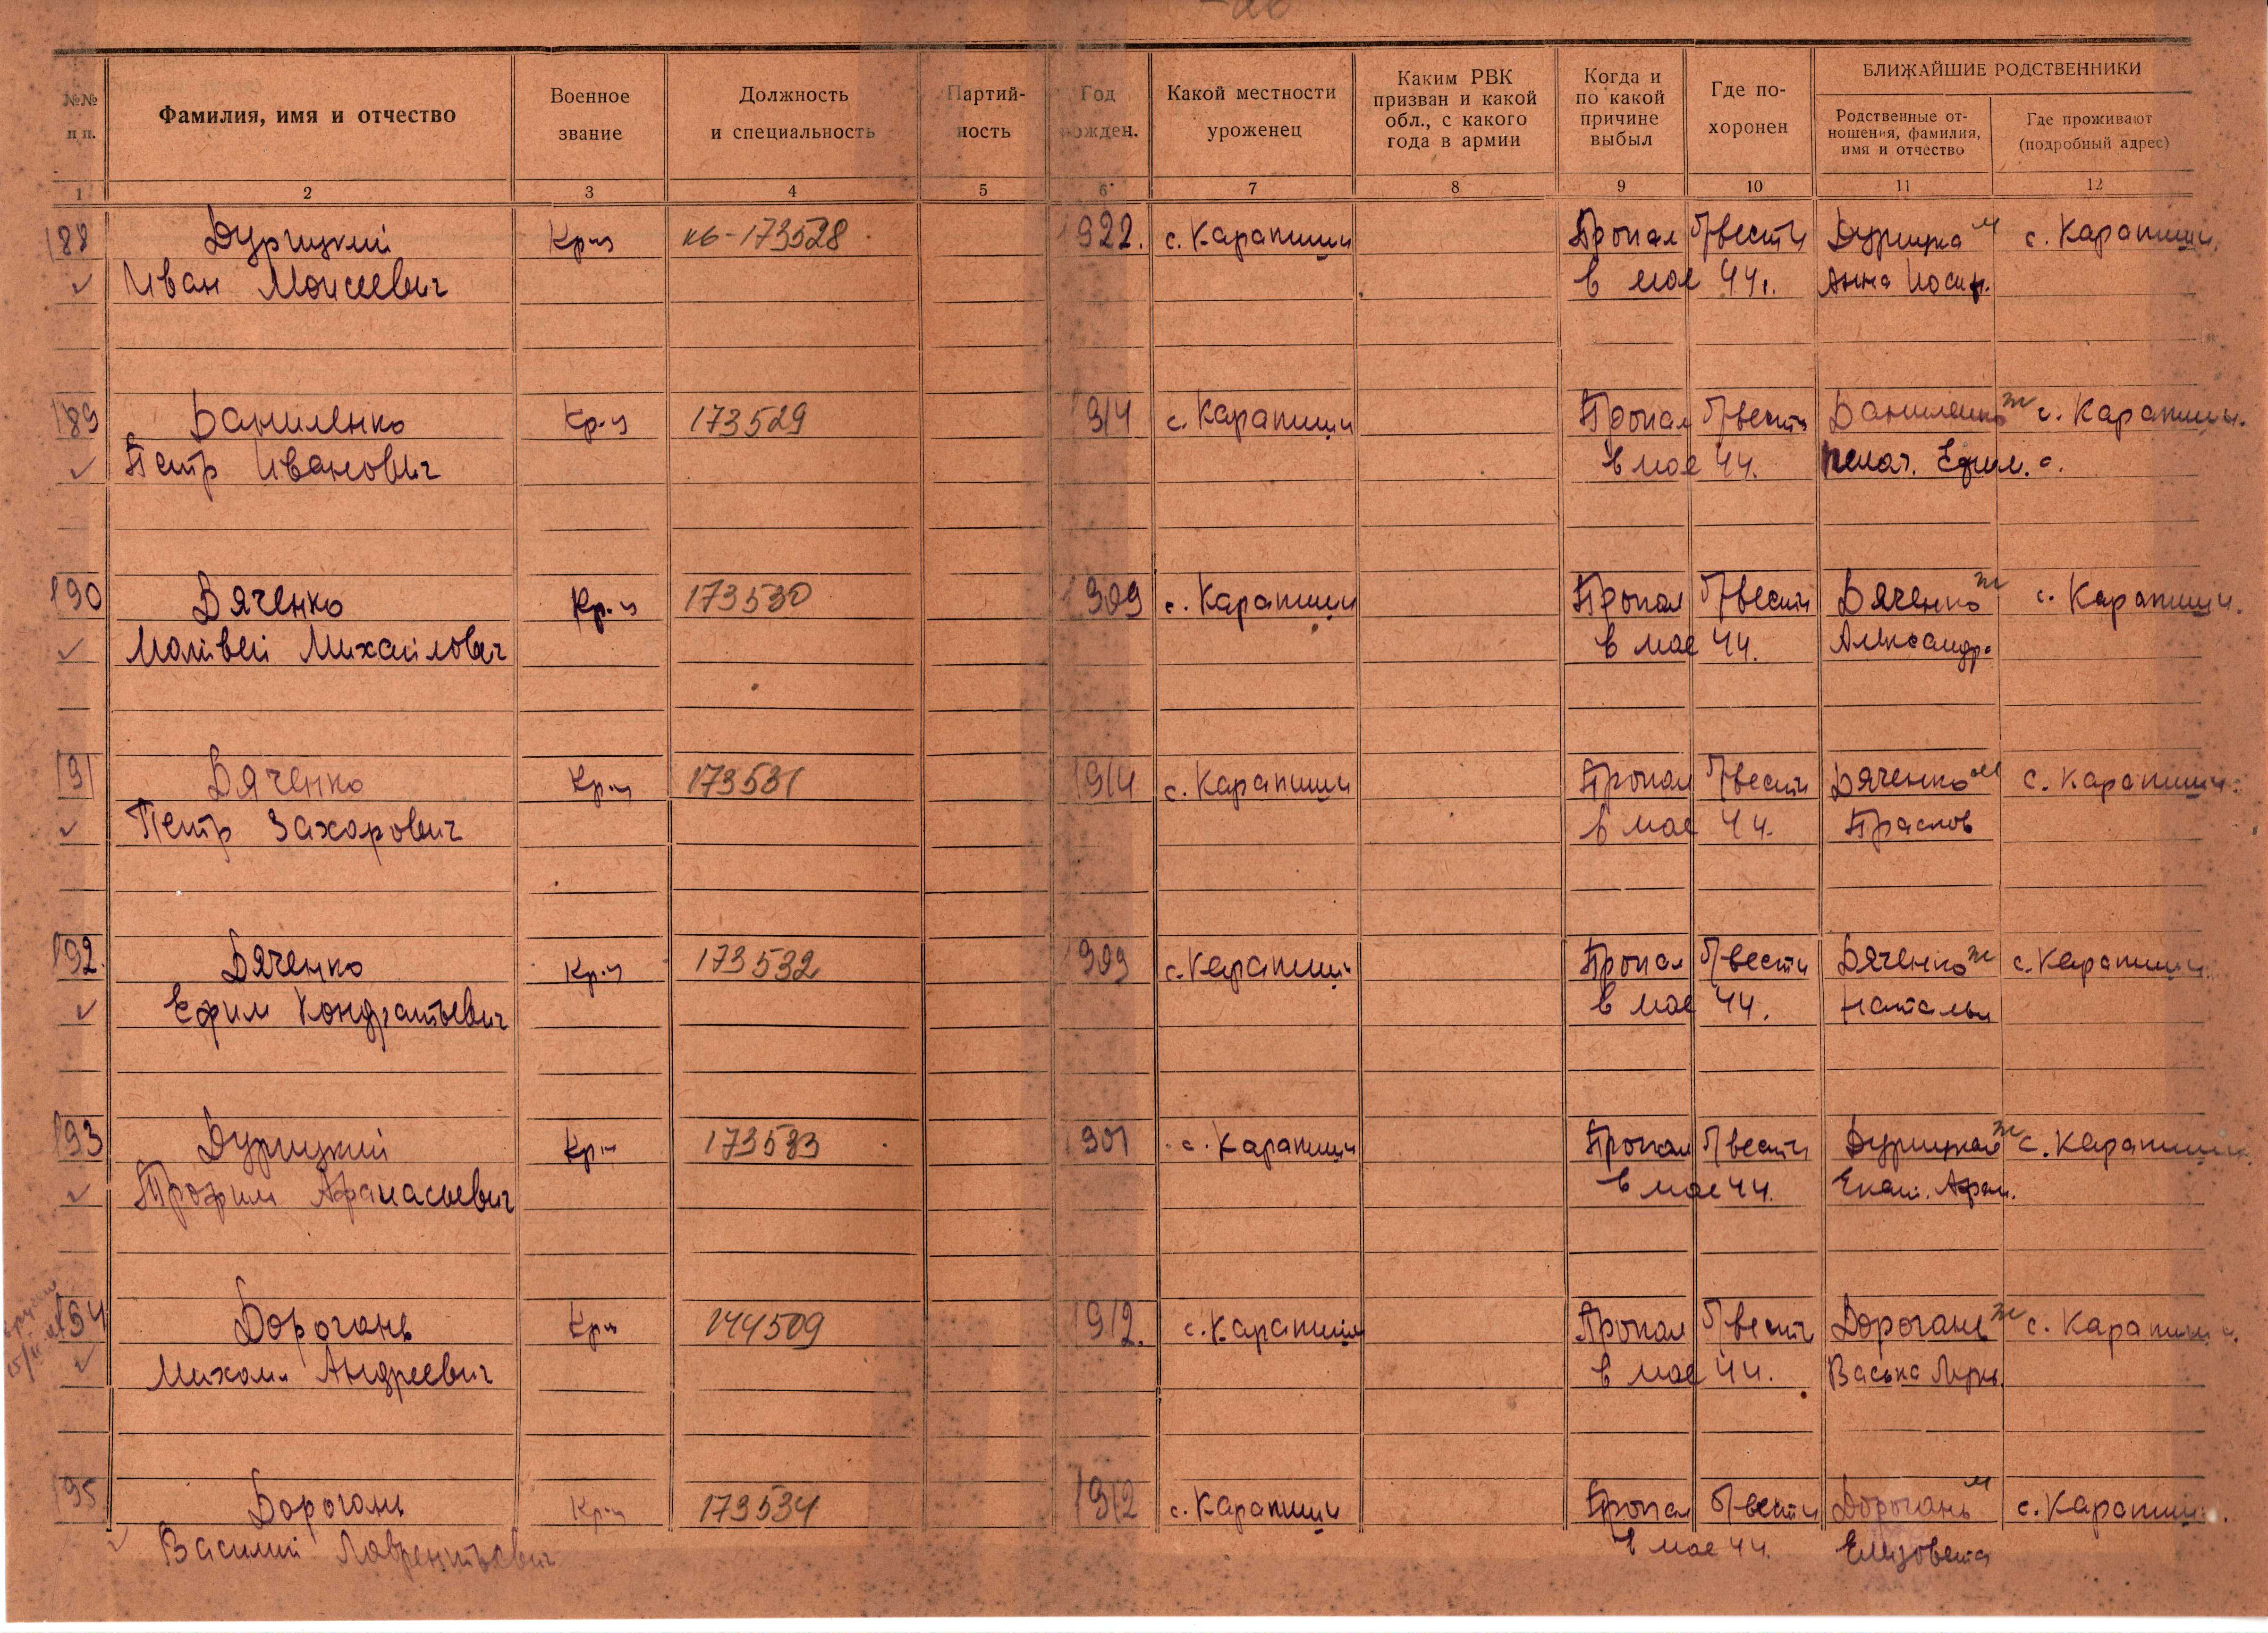 БЛИЖАЙШИЕ РОДСТВЕННИКИ
№№ п п.
Фамилия, имя и отчество
Военное звание
Должность и специальность
Партий- ность
Год рожден.
Какой местности уроженец
Каким РВК призван и какой обл., с какого года в армии
Когда и по какой причине выбыл
Где по- хоронен
Родственные от- ношения, фамилия, имя и отчество
Где проживают (подробный адрес)
1 2 3 4 5 6 7 8 9 10 11 12
188 Дурицкий Кр-ц кв-173528 1922. с. Карапиши Пропал б/вести Дурицка м с. Карапиши.
Иван Моисеевич в мае 44г. Анна Иосиф.
189 Даниленко Кр-ц 173529 1914 с. Карапиши Пропал б/вести Даниленко ж с. Карапиши.
Петр Иванович в мае 44. Пелаг. Ефим.
190 Дяченко Кр-ц 173530 1909 с. Карапиши Пропал б/вести Дяченко ж с. Карапиши.
Матвей Михайлович в мае 44. Александр.
191 Дяченко Кр-ц 173531 1914 с. Карапиши Пропал б/вести Дяченко м с. Карапиши.
Петр Захарович в мае 44. Прасков
192. Дяченко Кр-ц 173532 1909 с. Карапиши Пропал б/вести Дяченко ж с. Карапиши.
Ефим Кондратьевич в мае 44. Наталья
193 Дурицкий Кр-ц 173533 1901 с. Карапиши Пропал б/вести Дурицкая ж с. Карапиши.
Трофим Афанасьевич в мае 44. Екат. Афан.
194 Дорогань Кр-ц 144509 1912. с. Карапиши Пропал б/вести Дорогань ж с. Карапиши.
Михаил Андреевич в мае 44. Васька
195 Дорогань Кр-ц 173534 1912 с. Карапиши Пропал б/вести Дорогань м с. Карапиши.
Василий Лаврентьевич в мае 44. Елизовета